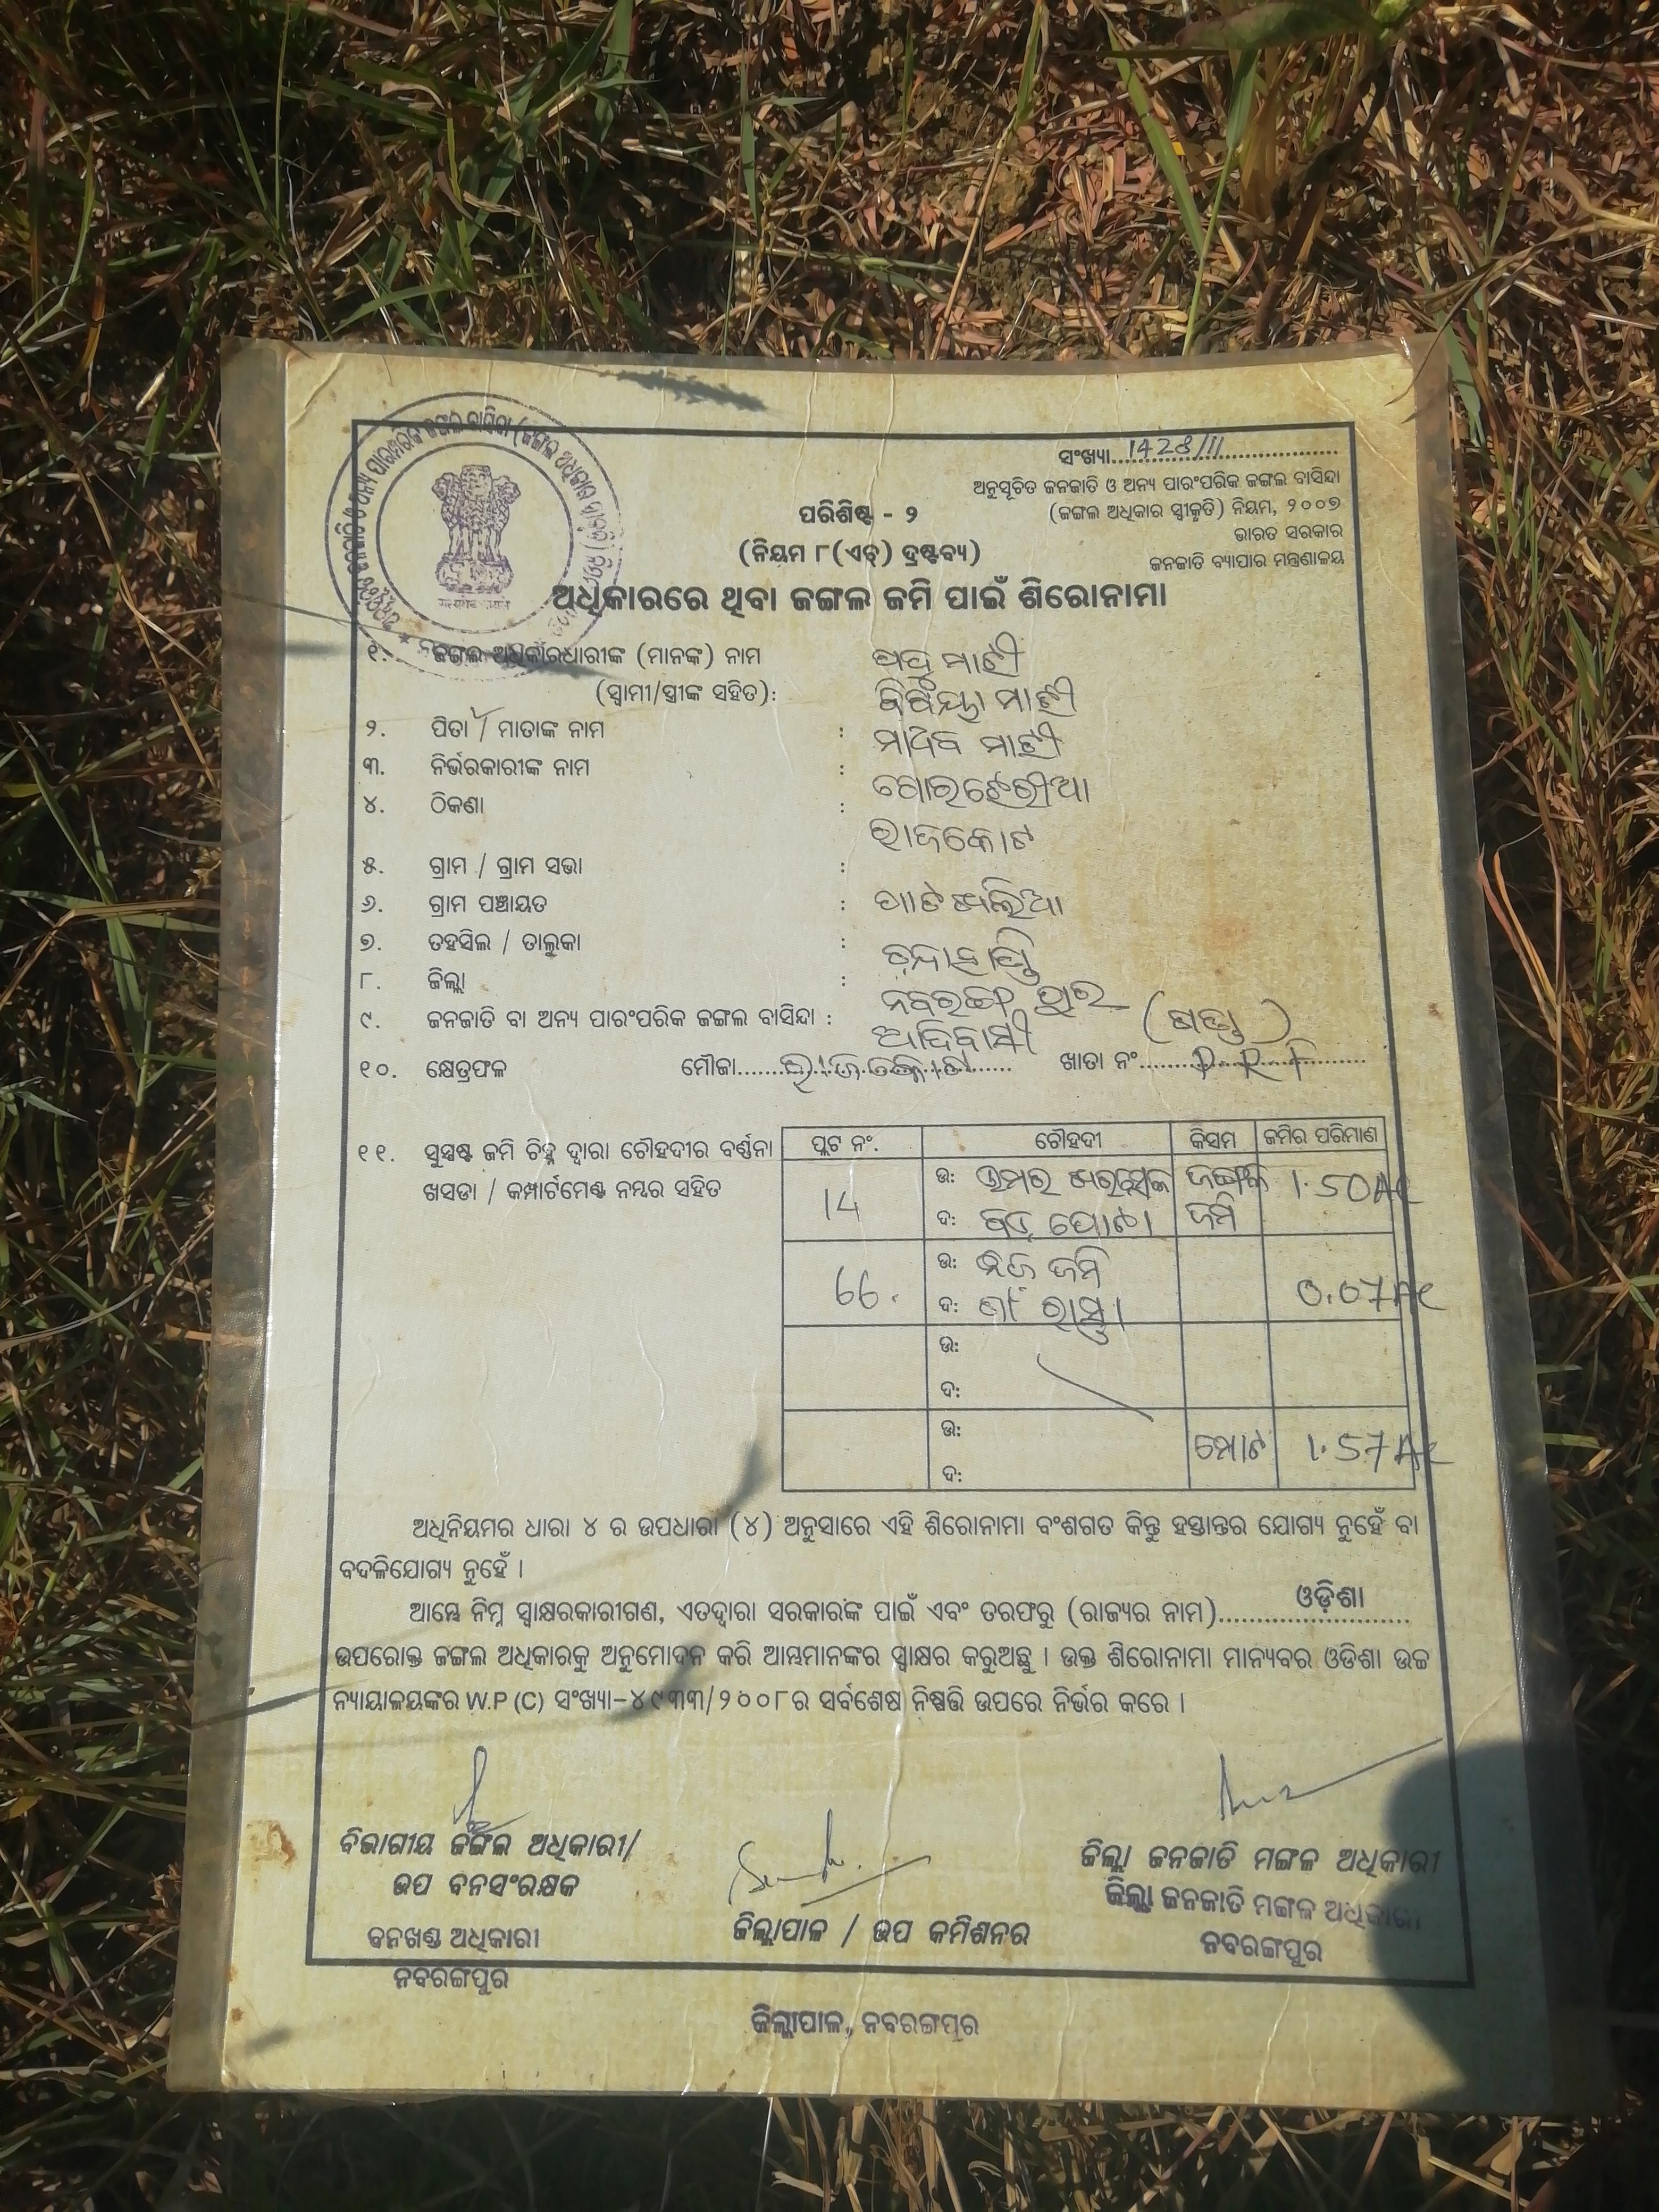 ସଂଖ୍ୟା...1428/11...
ଅନୁସୂଚିତ ଜନଜାତି ଓ ଅନ୍ୟ ପାରଂପରିକ ଜଙ୍ଗଲ ବାସିନ୍ଦା
(ଜଙ୍ଗଲ ଅଧିକାର ସ୍ୱୀକୃତି) ନିୟମ, ୨୦୦୭
ଭାରତ ସରକାର
ଜନଜାତି ବ୍ୟାପାର ମନ୍ତ୍ରଣାଳୟ
ପରିଶିଷ୍ଟ - ୨
(ନିୟମ ୮(ଏଚ୍) ଦ୍ରଷ୍ଟବ୍ୟ)
ଅଧିକାରରେ ଥିବା ଜଙ୍ଗଲ ଜମି ପାଇଁ ଶିରୋନାମା
୧. ଜଙ୍ଗଲ ଅଧିକାରଧାରୀଙ୍କ (ମାନଙ୍କ) ନାମ
(ସ୍ୱାମୀ/ସ୍ତ୍ରୀଙ୍କ ସହିତ):
୨. ପିତା / ମାତାଙ୍କ ନାମ :
୩. ନିର୍ଭରକାରୀଙ୍କ ନାମ :
୪. ଠିକଣା : ରାଜକୋଟ
୫. ଗ୍ରାମ / ଗ୍ରାମ ସଭା :
୬. ଗ୍ରାମ ପଞ୍ଚାୟତ :
୭. ତହସିଲ / ତାଲୁକା : ଚନ୍ଦାହାଣ୍ଡି
୮. ଜିଲ୍ଲା : ନବରଙ୍ଗପୁର
୯. ଜନଜାତି ବା ଅନ୍ୟ ପାରଂପରିକ ଜଙ୍ଗଲ ବାସିନ୍ଦା : ଆଦିବାସୀ
୧୦. କ୍ଷେତ୍ରଫଳ ମୌଜା...ରାଜକୋଟ... ଖାତା ନଂ...
୧୧. ସୁସ୍ପଷ୍ଟ ଜମି ଚିହ୍ନ ଦ୍ୱାରା ଚୌହଦୀର ବର୍ଣ୍ଣନା
ଖସଡା / କମ୍ପାର୍ଟମେଣ୍ଟ ନମ୍ବର ସହିତ
ପ୍ଲଟ ନଂ. ଚୌହଦୀ କିସମ ଜମିର ପରିମାଣ
14 ଉ: 1.50Ac
ଦ: ଜମି
66. ଉ: ନିଜ ଜମି 0.07Ac
ଦ: ରାସ୍ତା
ଉ:
ଦ:
ଉ: ମୋଟ 1.57Ac
ଦ:
ଅଧିନିୟମର ଧାରା ୪ ର ଉପଧାରା (୪) ଅନୁସାରେ ଏହି ଶିରୋନାମା ବଂଶଗତ କିନ୍ତୁ ହସ୍ତାନ୍ତର ଯୋଗ୍ୟ ନୁହେଁ ବା
ବଦଳିଯୋଗ୍ୟ ନୁହେଁ ।
ଆମ୍ଭେ ନିମ୍ନ ସ୍ୱାକ୍ଷରକାରୀଗଣ, ଏତଦ୍ୱାରା ସରକାରଙ୍କ ପାଇଁ ଏବଂ ତରଫରୁ (ରାଜ୍ୟର ନାମ)...ଓଡ଼ିଶା...
ଉପରୋକ୍ତ ଜଙ୍ଗଲ ଅଧିକାରକୁ ଅନୁମୋଦନ କରି ଆମ୍ଭମାନଙ୍କର ସ୍ୱାକ୍ଷର କରୁଅଛୁ । ଉକ୍ତ ଶିରୋନାମା ମାନ୍ୟବର ଓଡିଶା ଉଚ୍ଚ
ନ୍ୟାୟାଳୟଙ୍କର W.P (C) ସଂଖ୍ୟା-୪୯୩୩/୨୦୦୮ର ସର୍ବଶେଷ ନିଷ୍ପତ୍ତି ଉପରେ ନିର୍ଭର କରେ ।
ବିଭାଗୀୟ ଜଙ୍ଗଲ ଅଧିକାରୀ/
ଉପ ବନସଂରକ୍ଷକ
ବନଖଣ୍ଡ ଅଧିକାରୀ
ନବରଙ୍ଗପୁର
ଜିଲ୍ଲାପାଳ / ଉପ କମିଶନର
ଜିଲ୍ଲାପାଳ, ନବରଙ୍ଗପୁର
ଜିଲ୍ଲା ଜନଜାତି ମଙ୍ଗଳ ଅଧିକାରୀ
ଜିଲ୍ଲା ଜନଜାତି ମଙ୍ଗଳ ଅଧିକାରୀ
ନବରଙ୍ଗପୁର